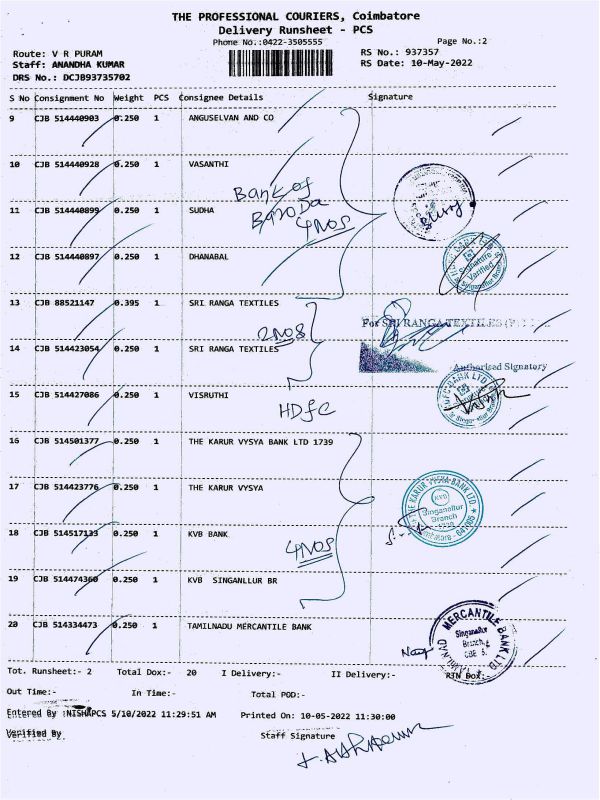 THE PROFESSIONAL COURIERS, Coimbatore
Delivery Runsheet - PCS
Phone No.:0422-3505555 Page No.:2
Route: V R PURAM RS No.: 937357
Staff: ANANDHA KUMAR RS Date: 10-May-2022
DRS No.: DCJB93735702
S No Consignment No Weight PCS Consignee Details Signature
9 CJB 514440903 0.250 1 ANGUSELVAN AND CO
10 CJB 514440928 0.250 1 VASANTHI
Bank of
11 CJB 514440899 0.250 1 SUDHA
Baroda
4NOS
12 CJB 514440897 0.250 1 DHANABAL
Signature
Verified
13 CJB 88521147 0.395 1 SRI RANGA TEXTILES
2NOS
For SRI RANGA TEXTILES (P)
14 CJB 514423054 0.250 1 SRI RANGA TEXTILES
Authorised Signatory
15 CJB 514427086 0.250 1 VISRUTHI
HDFC
HDFC BANK LTD
Singanallur Branch
16 CJB 514501377 0.250 1 THE KARUR VYSYA BANK LTD 1739
17 CJB 514423776 0.250 1 THE KARUR VYSYA
THE KARUR VYSYA BANK LTD.
KVB
Singanallur
Branch
18 CJB 514517133 0.250 1 KVB BANK
4NOS
19 CJB 514474360 0.250 1 KVB SINGANLLUR BR
20 CJB 514334473 0.250 1 TAMILNADU MERCANTILE BANK
TAMILNAD MERCANTILE BANK
Singanallur
Branch,
CBE 5.
Tot. Runsheet:- 2 Total Dox:- 20 I Delivery:- II Delivery:- RTN Dox:-
Out Time:- In Time:- Total POD:-
Entered By :NISHAPCS 5/10/2022 11:29:51 AM Printed On: 10-05-2022 11:30:00
Verified By Staff Signature